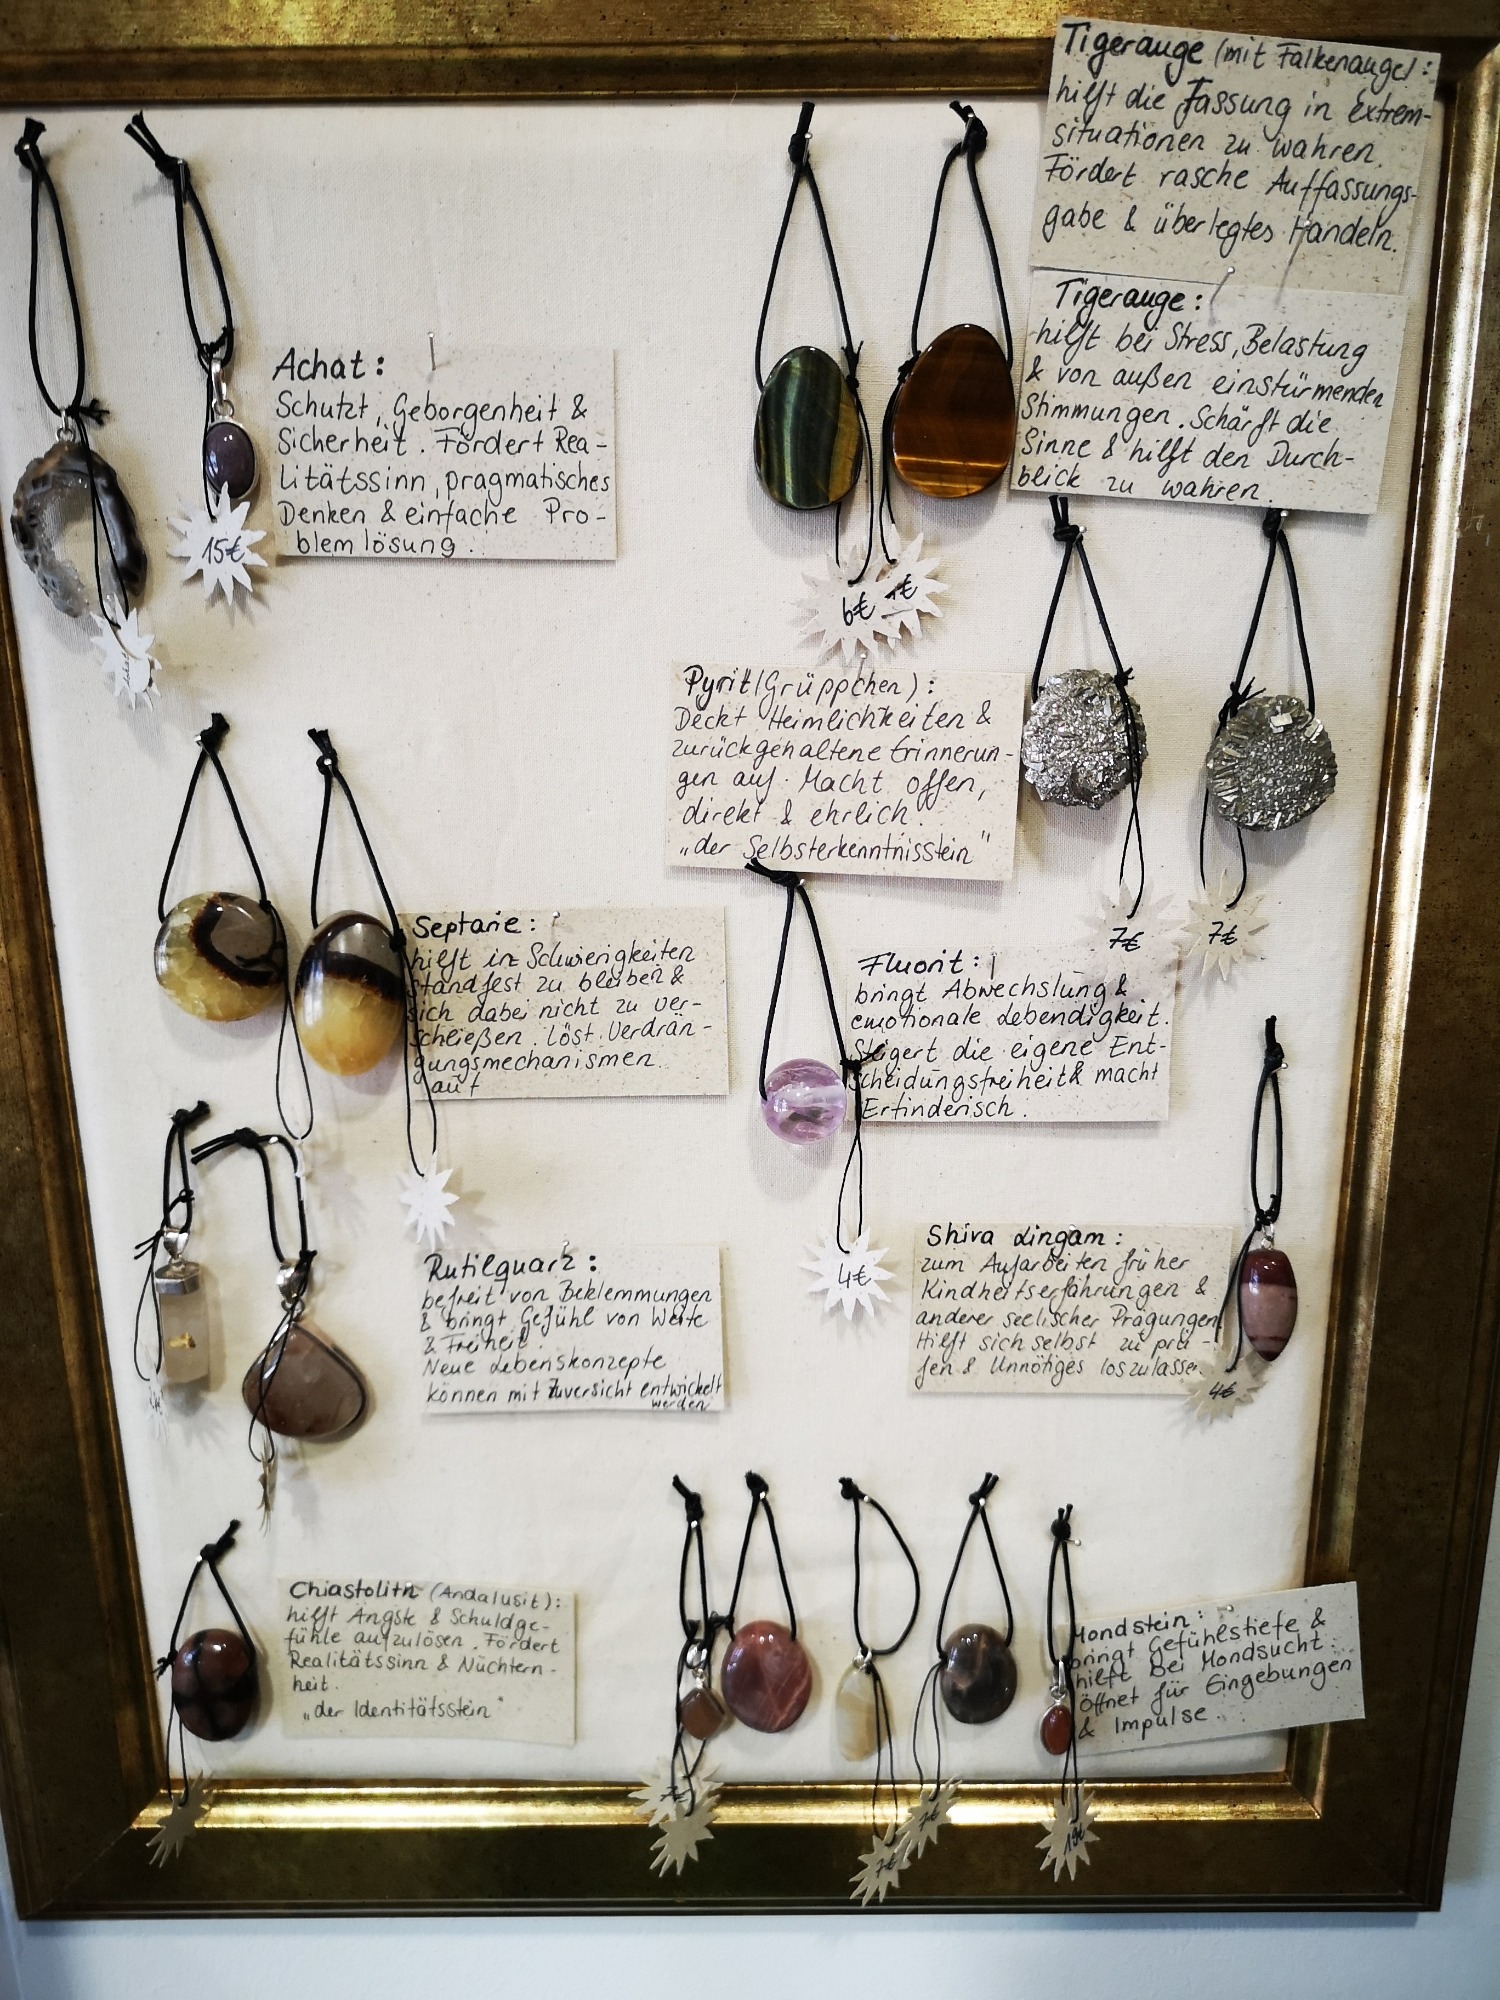 Tigerauge (mit Falkenauge):
hilft die Fassung in Extrem-
situationen zu wahren.
Fördert rasche Auffassungs-
gabe & überlegtes Handeln.
Tigerauge:
hilft bei Stress, Belastung
& von außen einstürmenden
Stimmungen. Schärft die
Sinne & hilft den Durch-
blick zu wahren.
Achat:
Schutzt, Geborgenheit &
Sicherheit. Fördert Rea-
litätssinn, pragmatisches
Denken & einfache Pro-
blemlösung.
15€
6€
Pyrit (Grüppchen):
Deckt Heimlichkeiten &
zurückgehaltene Erinnerun-
gen auf. Macht offen,
direkt & ehrlich.
„der Selbsterkenntnisstein"
7€
7€
Septarie:
hilft in Schwierigkeiten
standfest zu bleiben &
sich dabei nicht zu ver-
schließen. Löst Verdrän-
gungsmechanismen
auf
Fluorit:
bringt Abwechslung &
emotionale Lebendigkeit.
Steigert die eigene Ent-
scheidungsfreiheit & macht
Erfinderisch.
4€
Rutilquarz:
befreit von Beklemmungen
& bringt Gefühl von Weite
& Freiheit.
Neue Lebenskonzepte
können mit Zuversicht entwickelt
werden
Shiva Lingam:
zum Aufarbeiten früher
Kindheitserfahrungen &
anderer seelischer Prägungen.
Hilft sich selbst zu prü-
fen & Unnötiges loszulassen.
4€
Chiastolith (Andalusit):
hilft Ängste & Schuldge-
fühle aufzulösen. Fördert
Realitätssinn & Nüchtern-
heit.
„der Identitätsstein"
Mondstein:
bringt Gefühlstiefe &
hilft bei Mondsucht.
öffnet für Eingebungen
& Impulse.
7€
7€
7€
19€